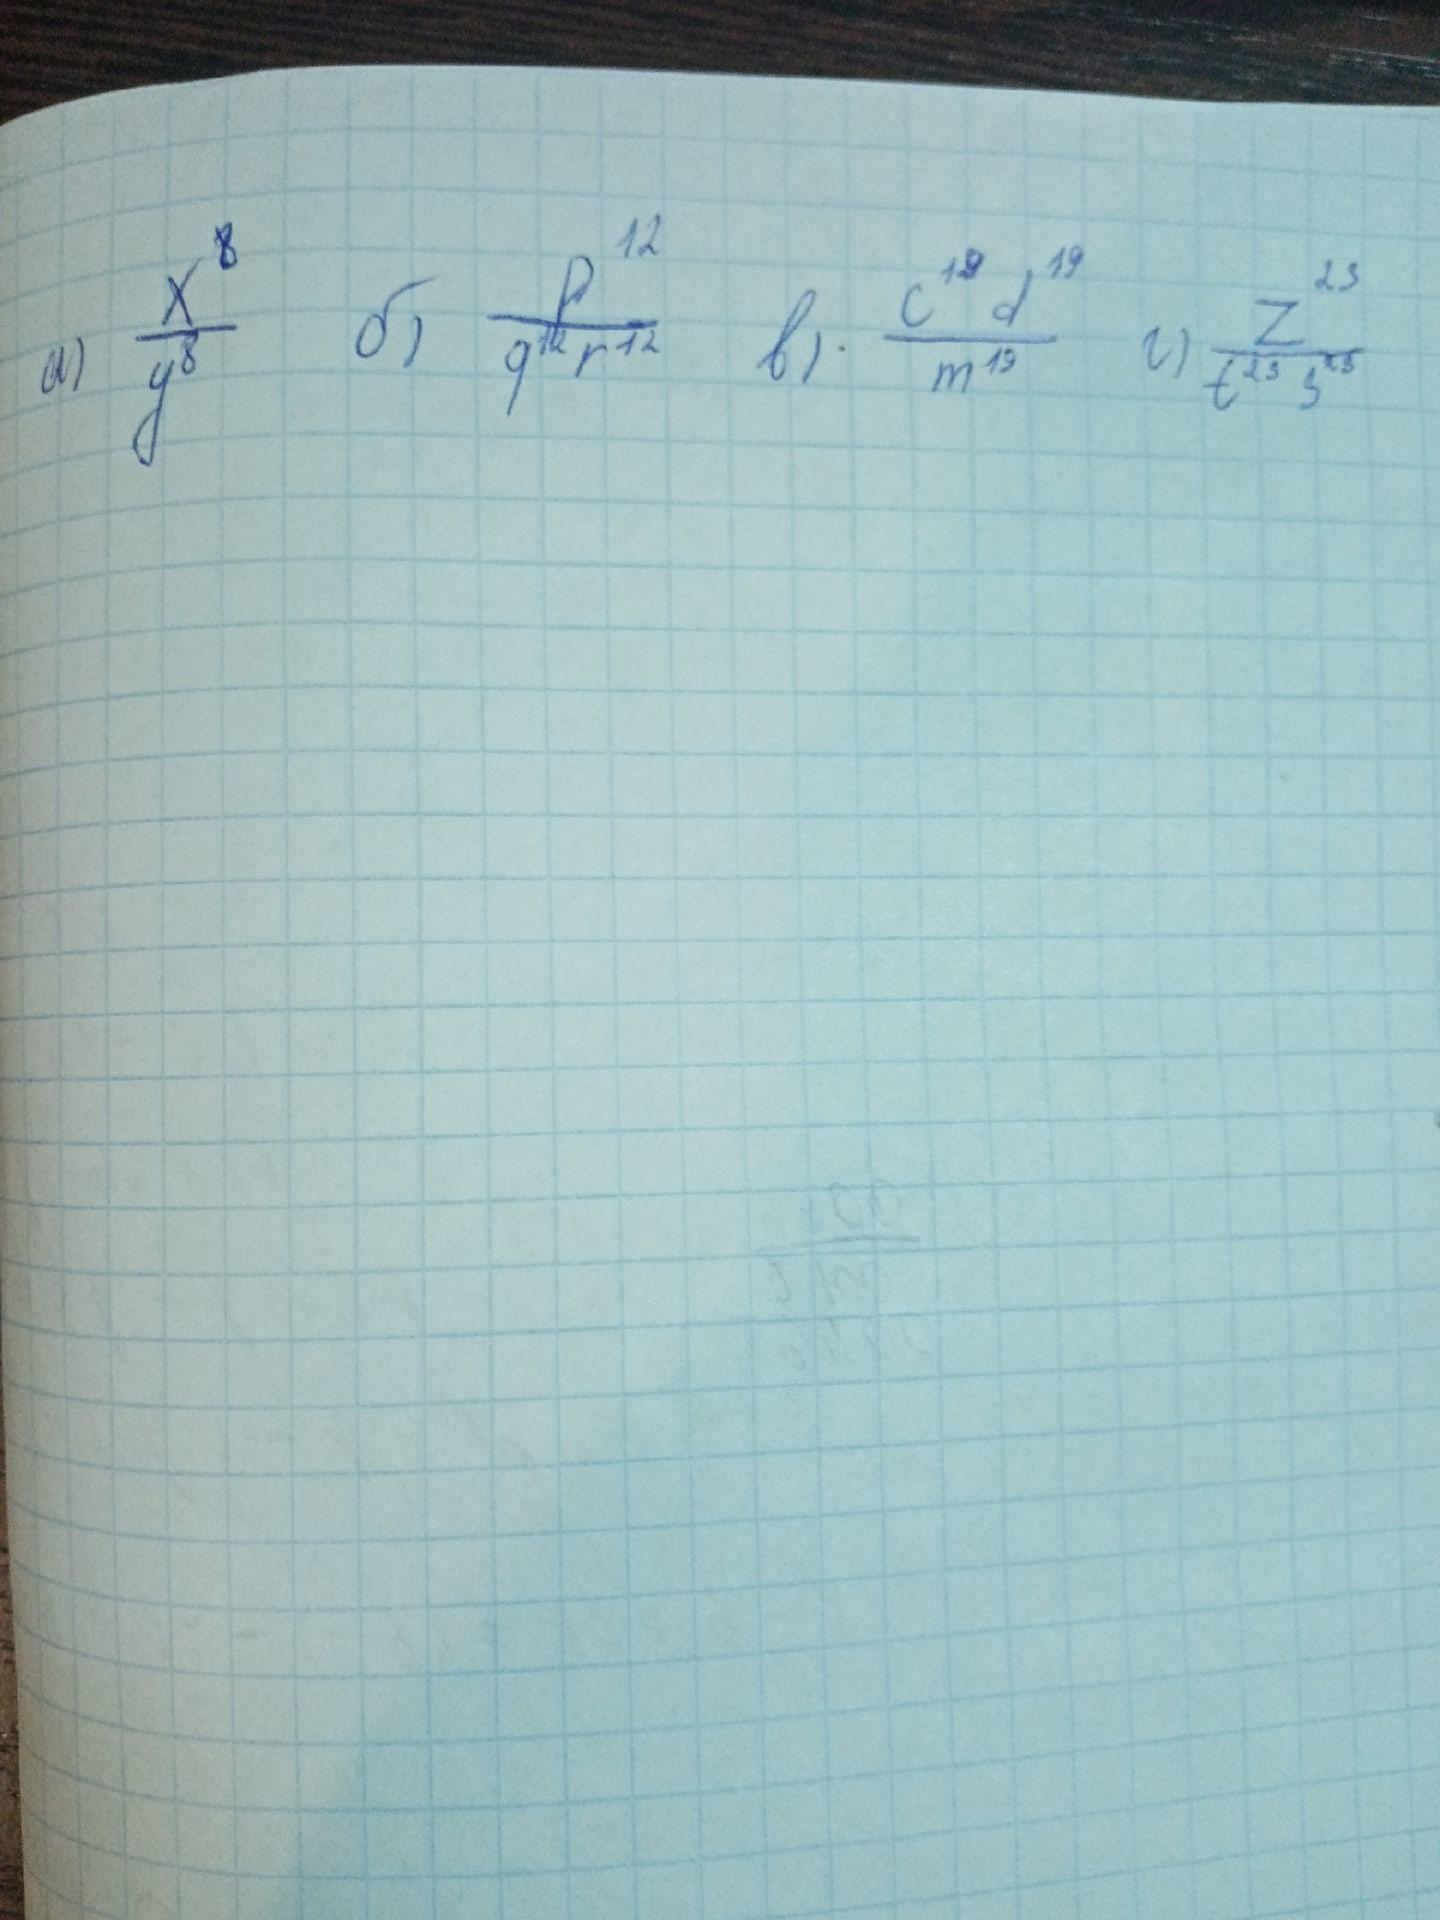 а) x⁸/y⁸ б) p¹²/q¹²r¹² в) c¹⁹d¹⁹/m¹⁹ г) z²³/t²³s²³